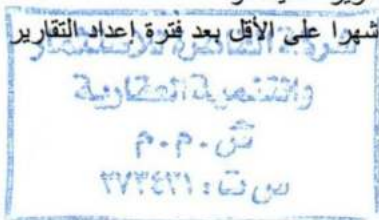 شهرا على الأقل بعد فترة إعداد التقارير
شركة القاهرة للاستثمار
والتنمية العقارية
ش.م.م
س ت :